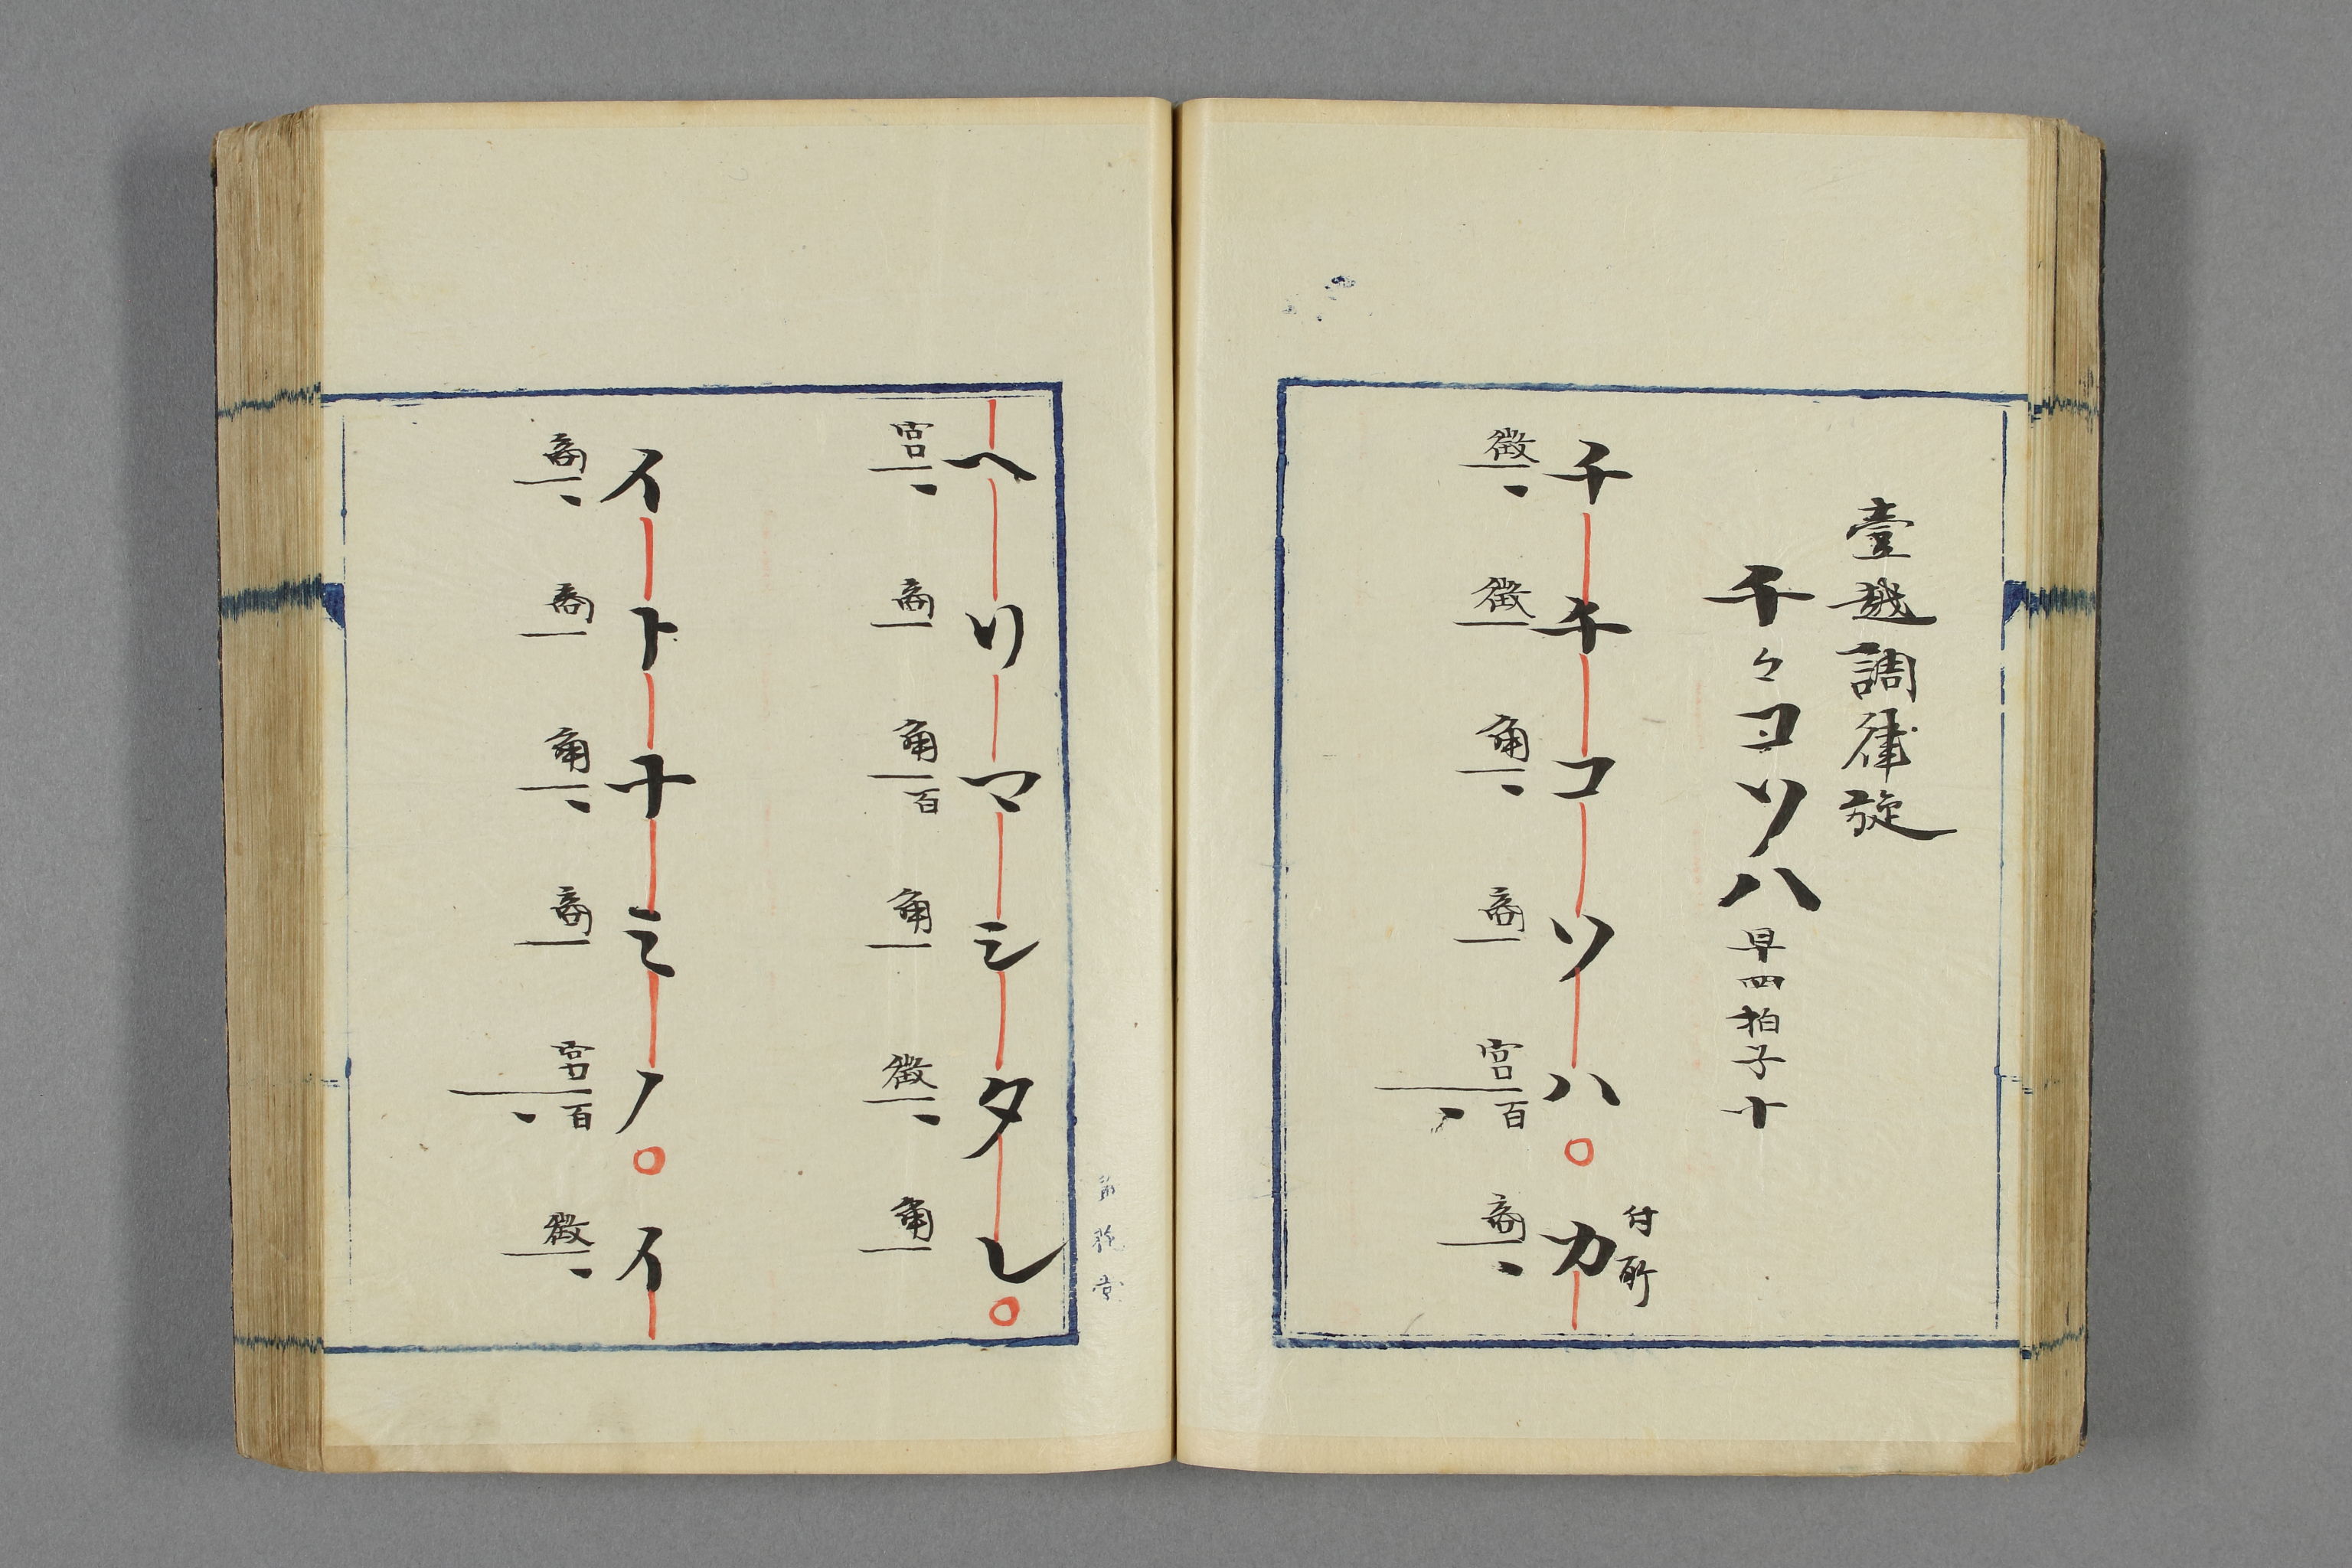 壹越調律旋
千々コソハ 早四拍子十
千千コソハ○カ
付所
徴 徴 角 商 宮百 商
ヘリマシタレ○
宮 商 角百 角 徴 角
イトナミノ○イ
商 商 角 商 宮百 徴